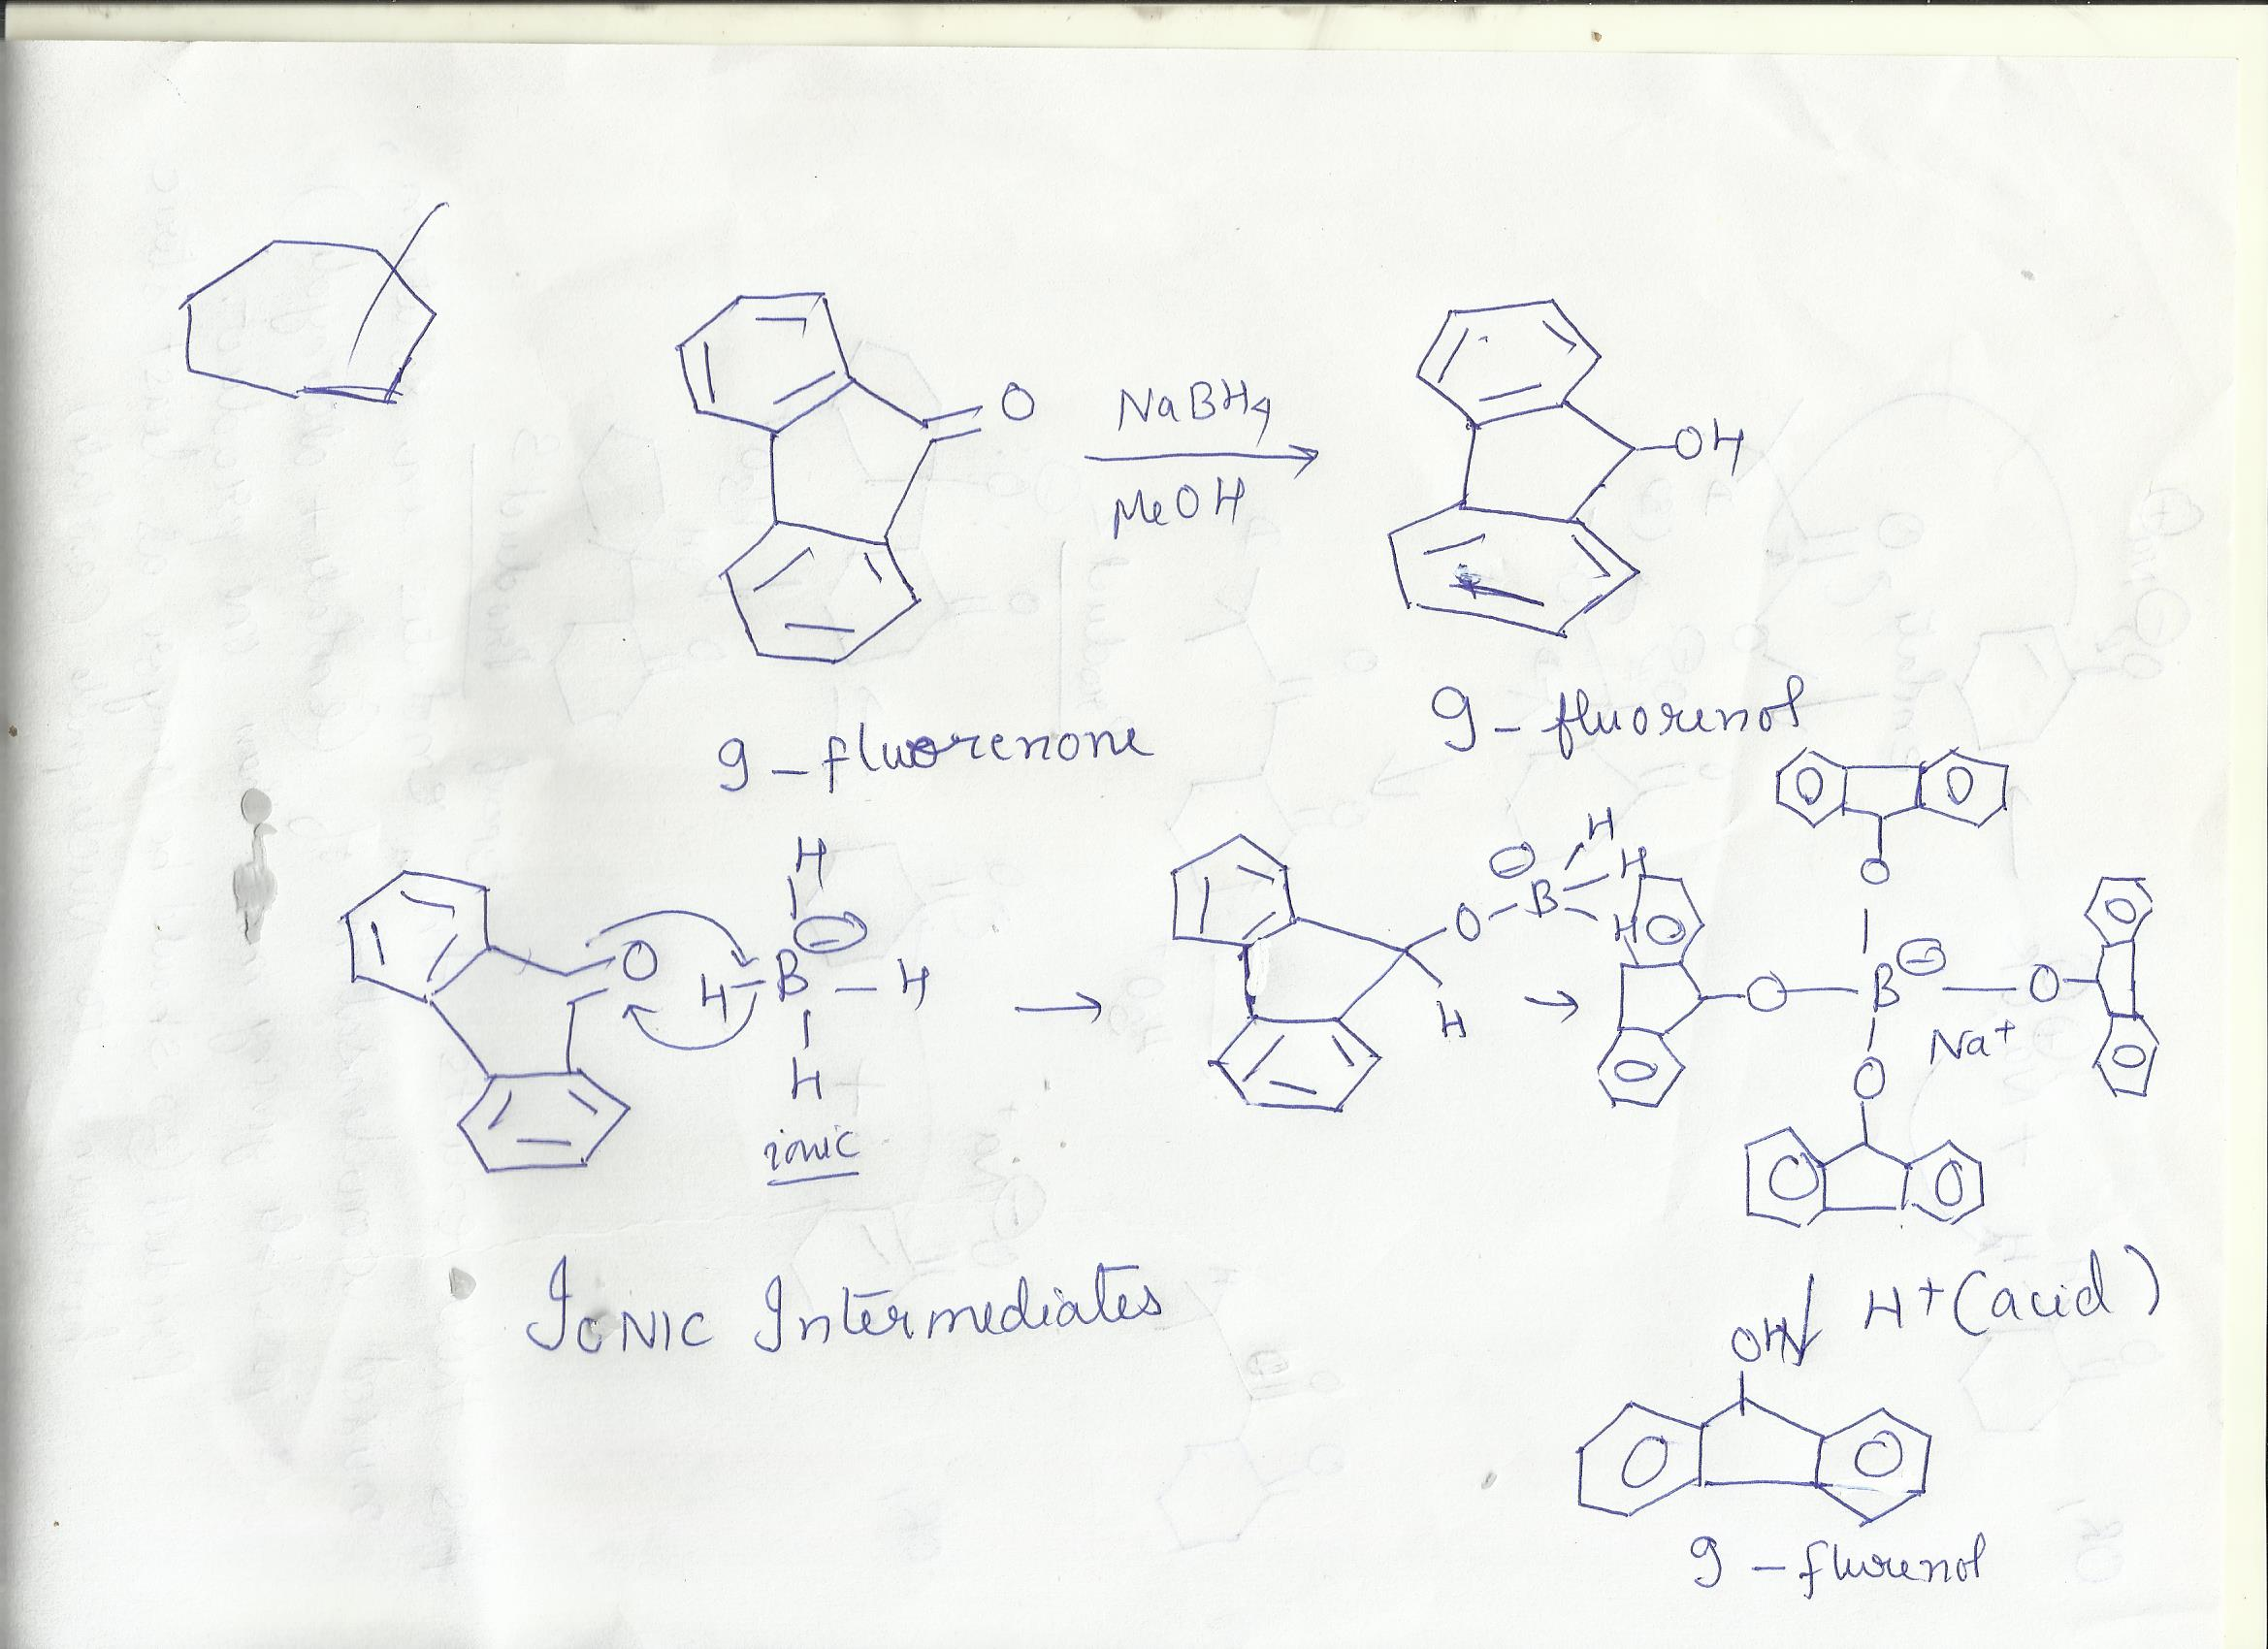 O
NaBH4
MeOH
OH
9-fluorenone
9-fluorenol
H
⊖
O
H-B-H
H
ionic
⊖
H
O-B-H
H
H
O
O-B⊖-O
Na+
O
Ionic Intermediates
H+(acid)
OH
9-flurenol